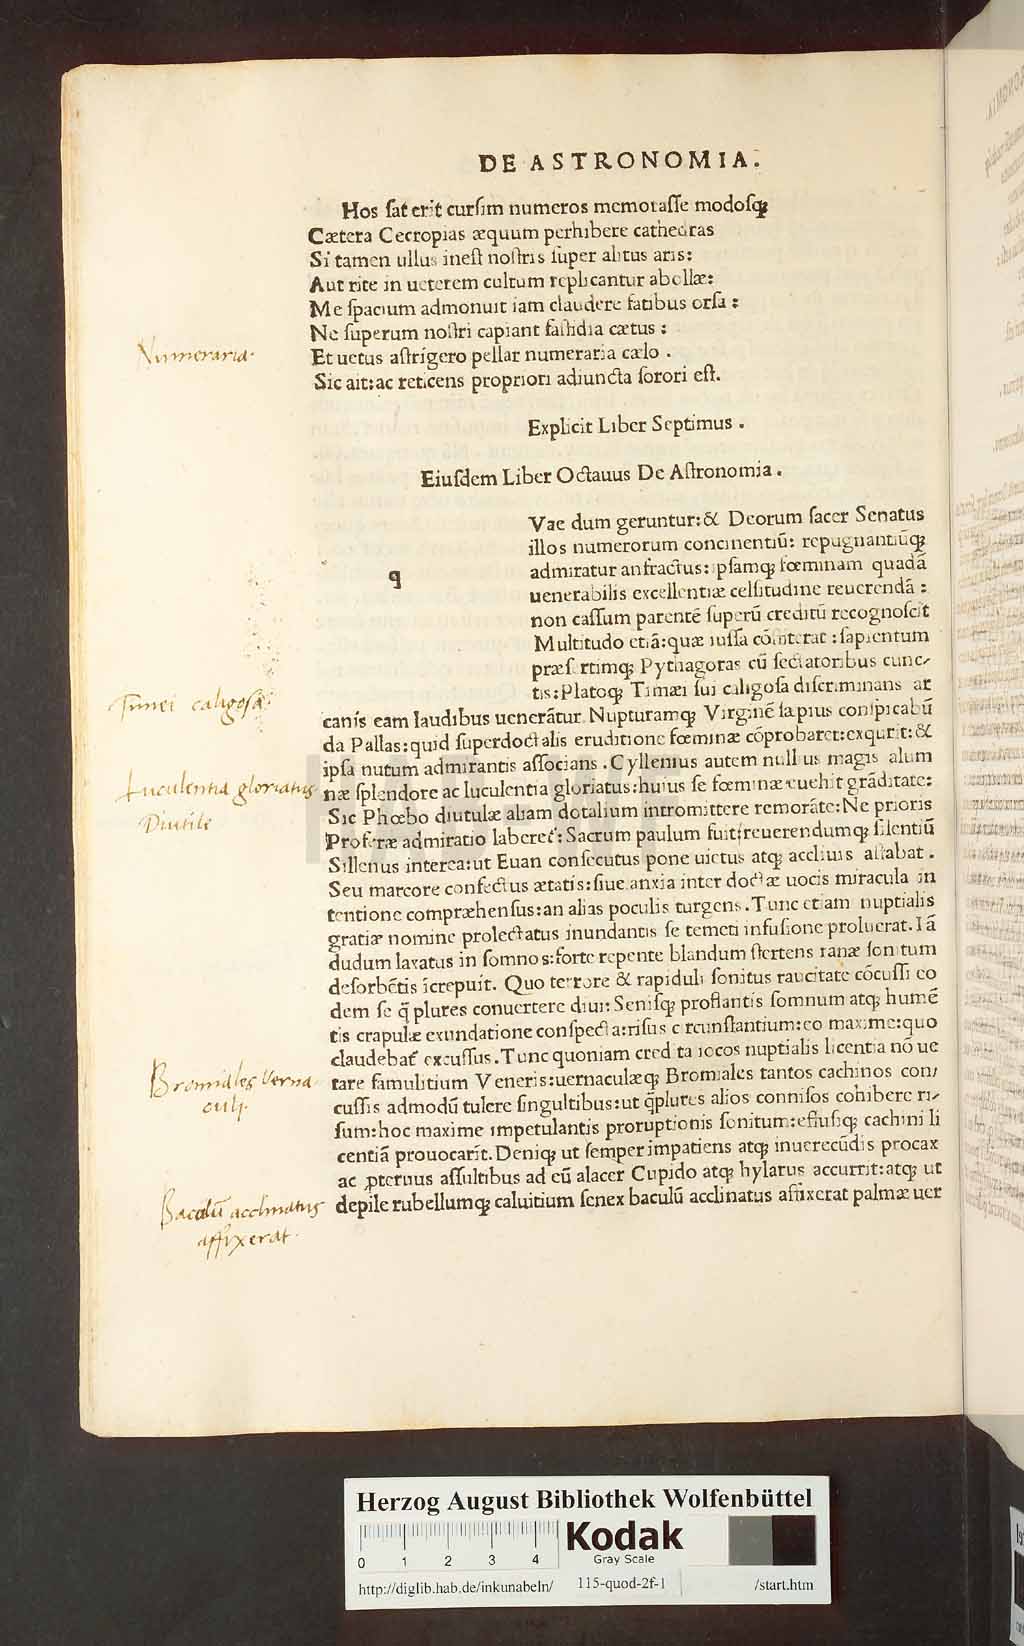 DE ASTRONOMIA.
Hos sat erit cursim numeros memorasse modosqꝫ
Cætera Cecropias æquum perhibere cathedras
Si tamen ullus inest nostris super alitus aris:
Aut rite in ueterem cultum replicantur abollæ:
Me spacium admonuit iam claudere fatibus orsa:
Ne superum nostri capiant fastidia cætus:
Et uetus astrigero pellar numeraria cælo.
Sic ait: ac reticens propriori adiuncta sorori est.
Explicit Liber Septimus.
Eiusdem Liber Octauus De Astronomia.
q
Vae dum geruntur: & Deorum sacer Senatus
illos numerorum concinentiū: repugnantiūqꝫ
admiratur anfractus: ipsamqꝫ fœminam quadā
uenerabilis excellentiæ celsitudine reuerendā:
non cassum parentē superū creditū recognoscit
Multitudo etiā: quæ iussa cōsiterat: sapientum
præsertimqꝫ Pythagoras cū sectatoribus cunc-
tis: Platoqꝫ Timæi sui caligosa discriminans ar
canis eam laudibus uenerātur. Nupturamqꝫ Virginē sæpius conspicabū
da Pallas: quid superdoctalis eruditione fœminæ cōprobaret: exqurit: &
ipsa nutum admirantis associans. Cyllenius autem nullius magis alum
næ splendore ac luculentia gloriatus: huius se fœminæ euehit grāditate:
Sic Phœbo diutulæ aliam dotalium intromittere remorāte: Ne prioris
Proferæ admiratio laberet̄: Sacrum paulum fuit reuerendumqꝫ silentiū
Sillenus interea: ut Euan consecutus pone uictus atqꝫ accliuis astabat.
Seu marcore confectus ætatis: siue anxia inter doctæ uocis miracula in
tentione compræhensus: an alias poculis turgens. Tunc etiam nuptialis
gratiæ nomine prolectatus inundantis se temeti infusione proluerat. Iā
dudum laxatus in somnos: forte repente blandum stertens ranæ sonitum
desorbētis īcrepuit. Quo terrore & rapiduli sonitus raucitate cōcussi eo
dem se q̄ plures conuertere diui: Senisqꝫ proflantis somnum atqꝫ humē
tis crapulæ exundatione conspecta: risus circunstantium: eo maxime: quo
claudebat̄ excussus. Tunc quoniam credita iocos nuptialis licentia nō ue
tare famulitium Veneris: uernaculæqꝫ Bromiales tantos cachinos con-
cussis admodū tulere singultibus: ut q̄plures alios connisos cohibere ri-
sum: hoc maxime impetulantis proruptionis sonitum: effusiqꝫ cachini li
centiā prouocarit. Deniqꝫ ut semper impatiens atqꝫ inuerecūdis procax
ac ꝓteruus assultibus ad eū alacer Cupido atqꝫ hylarus accurrit: atqꝫ ut
depile rubellumqꝫ caluitium senex baculū acclinatus affixerat palmæ uer
Numeraria.
Timei caligosa.
Luculentia gloriatus
Diutile
Bromiales Verna
culi.
Baculū acclinatus
affixerat.
HAB-WF
Herzog August Bibliothek Wolfenbüttel
0 1 2 3 4
Kodak
Gray Scale
http://diglib.hab.de/inkunabeln/ 115-quod-2f-1 /start.htm